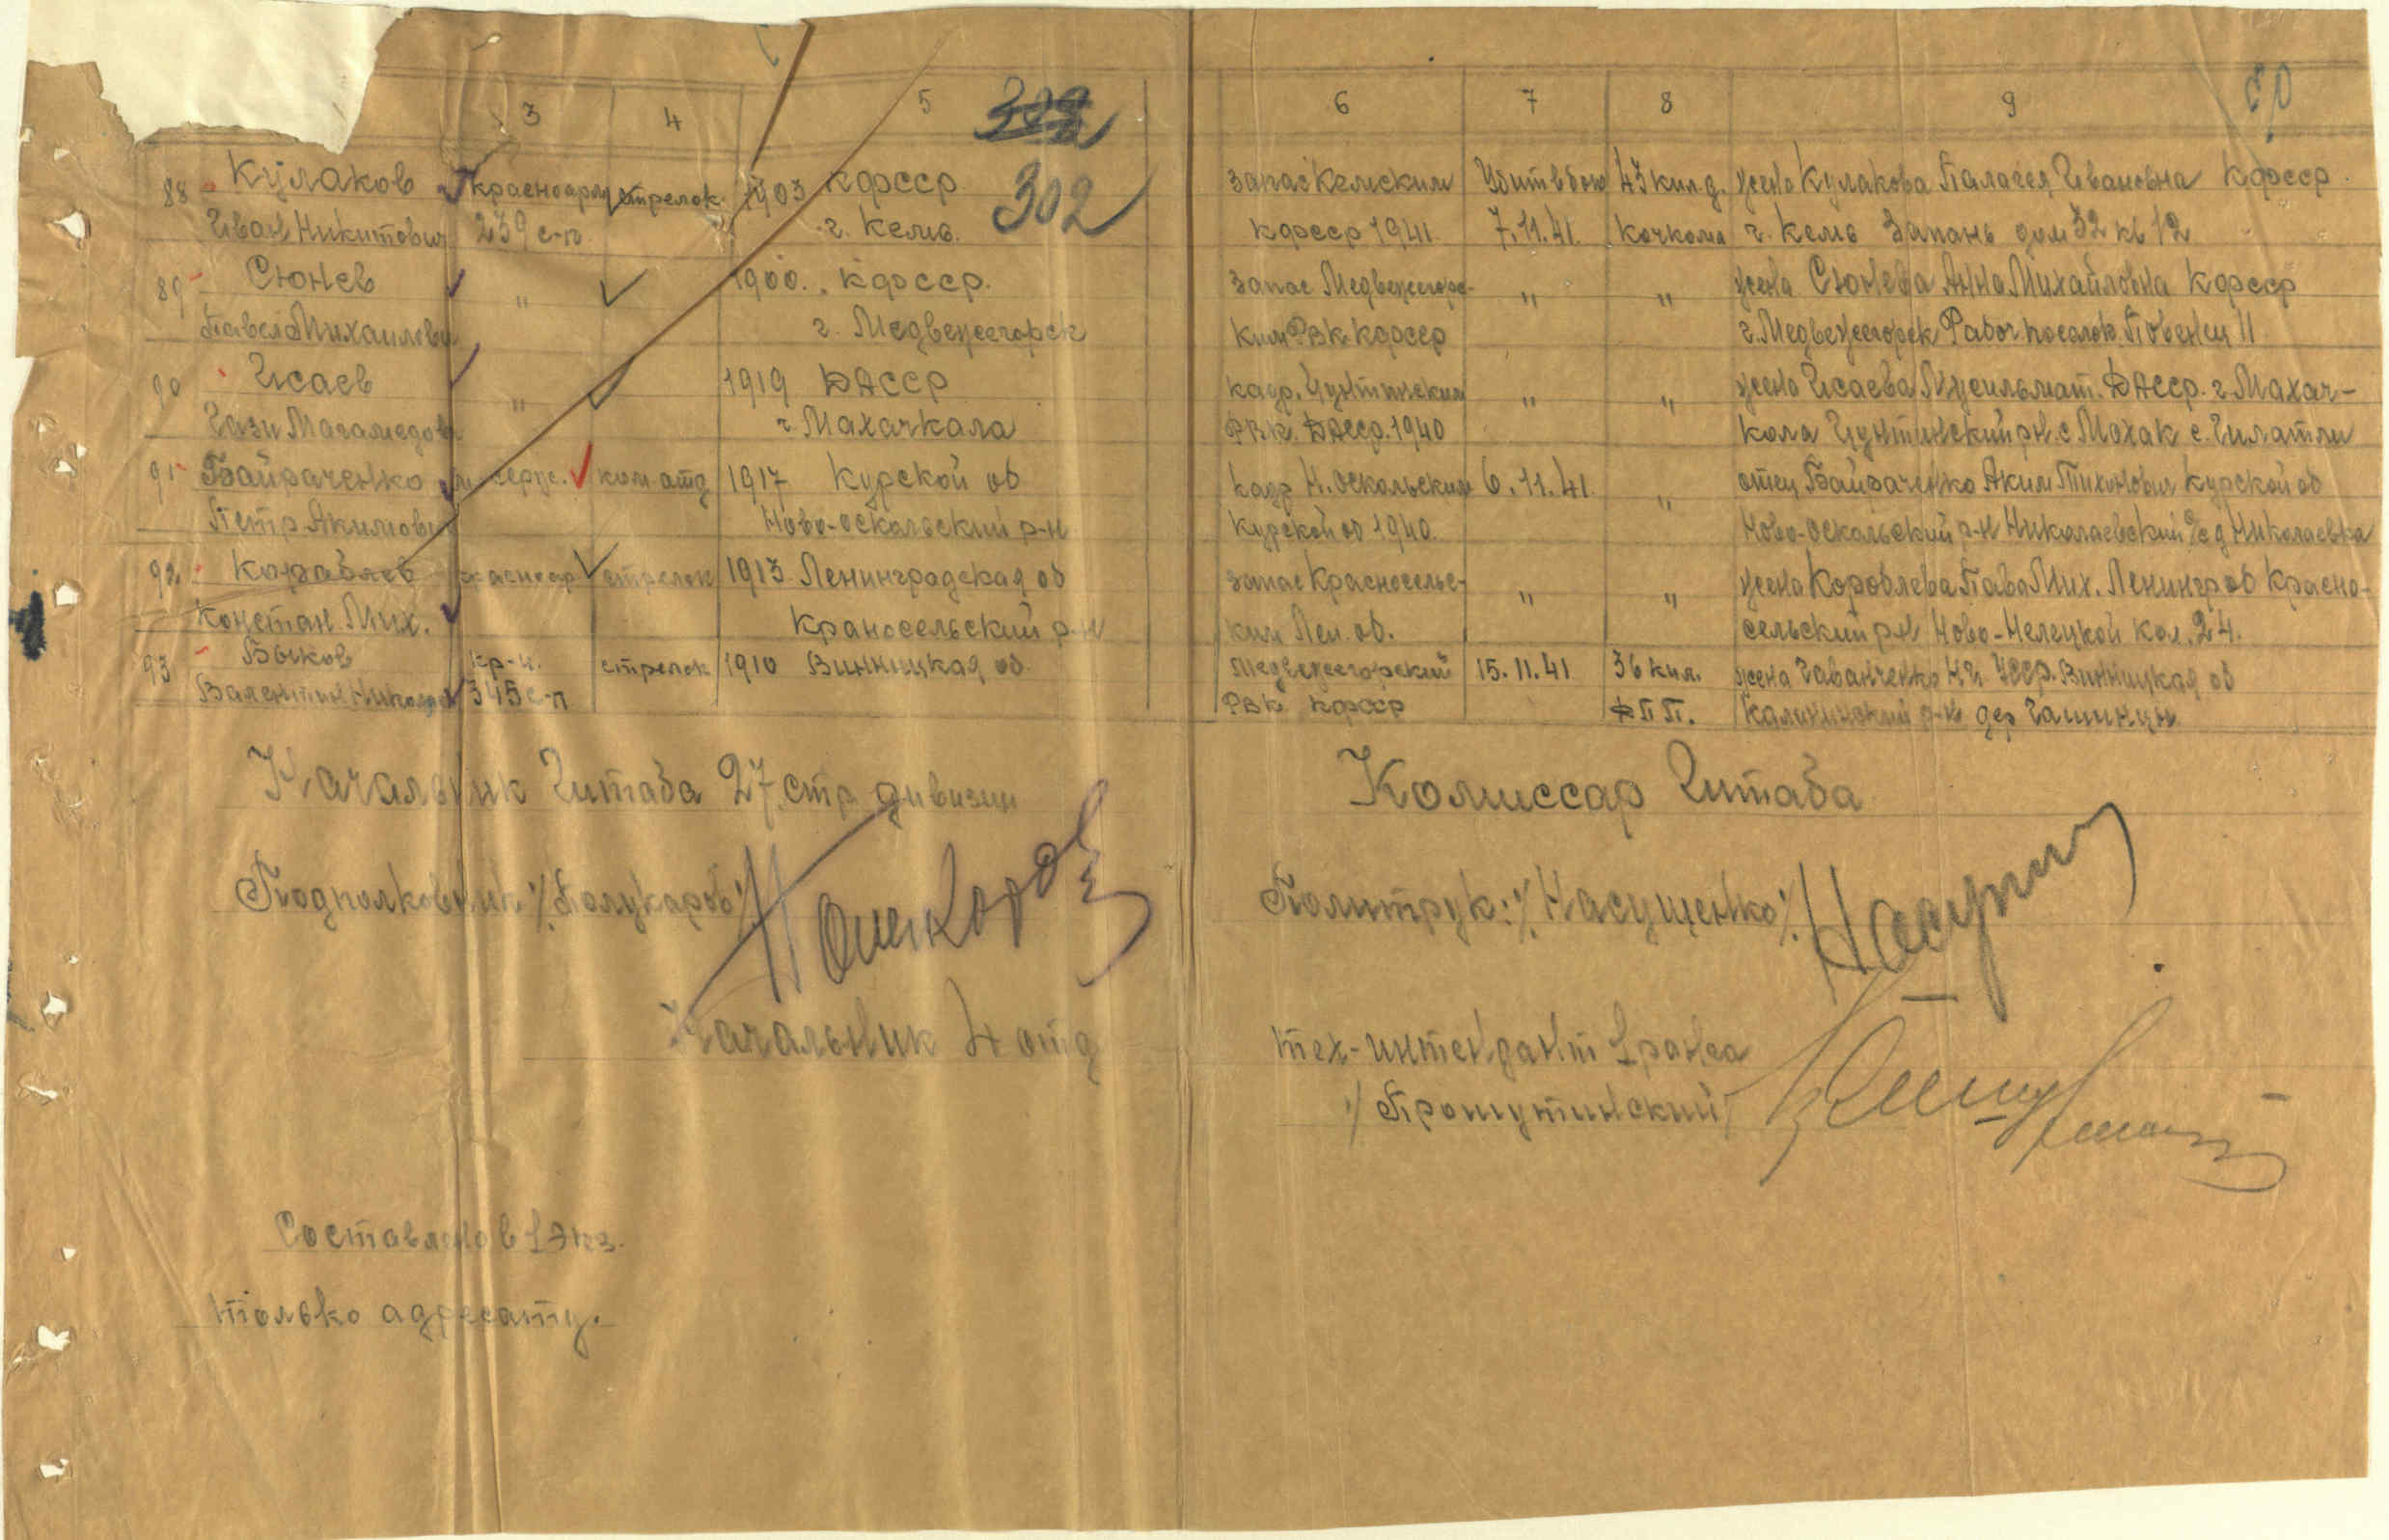 3 4 5 6 7 8 9
302
302
88 Кулаков красноарм стрелок 1903 КФССР запас Кемским Убит в бою 43 кил.д. жена Кулакова Палагея Ивановна КФССР
Иван Никитович 239 с-п г. Кемь. КФССР 1941 7.11.41. Кочкома г. Кемь Запань дом 32 кв 12
89 Сюнев " 1900. КФССР. запас Медвежегорс- " " жена Сюнева Анна Михайловна КФССР
Павел Михайлови г. Медвежегорск ким РВК КФССР г. Медвежегорск Рабоч поселок Повенец 11
90 Исаев " 1919 ДАССР кадр. Цунтинским " " жена Исаева ДАССР. г. Махач-
Гази Магамедов г. Махачкала РВК. ДАССР. 1940 кола Цунтинский рн. с Мохак с. Гилатли
91 Байраченко м серж. ком. отд 1917 Курской об кадр Н. Оскольским 6.11.41. " отец Байраченко Аким Тихонович Курской об
Петр Акимови Ново-Оскольский р-н Курской об 1940. Ново-Оскольский р-н Николаевский с/с д Николаевка
92 Кораблев красноар стрелок 1913 Ленинградская об запас Красносельс- " " жена Короблева Пава Мих. Ленингр об Красно-
Констан Мих. Краносельский р-н ким Лен. об. сельский р-н Ново- кол. 24.
93 Быков кр-ц. стрелок 1910 Винницкая об Медвежегорский 15.11.41 36 кил. жена Гаванченко УССР. Винницкая об
Валентин Николаев 345 с-п РВК КФССР ФПП. Калининский р-н дер Гашинцы
Начальник Штаба 27 стр дивизии Комиссар Штаба
Подполковник /Полукаров/ Политрук: /Насущенко/
Начальник 4 отд тех-интендант 1 ранга
/Прошутинский/
Составлено в 1 экз.
только адресату.